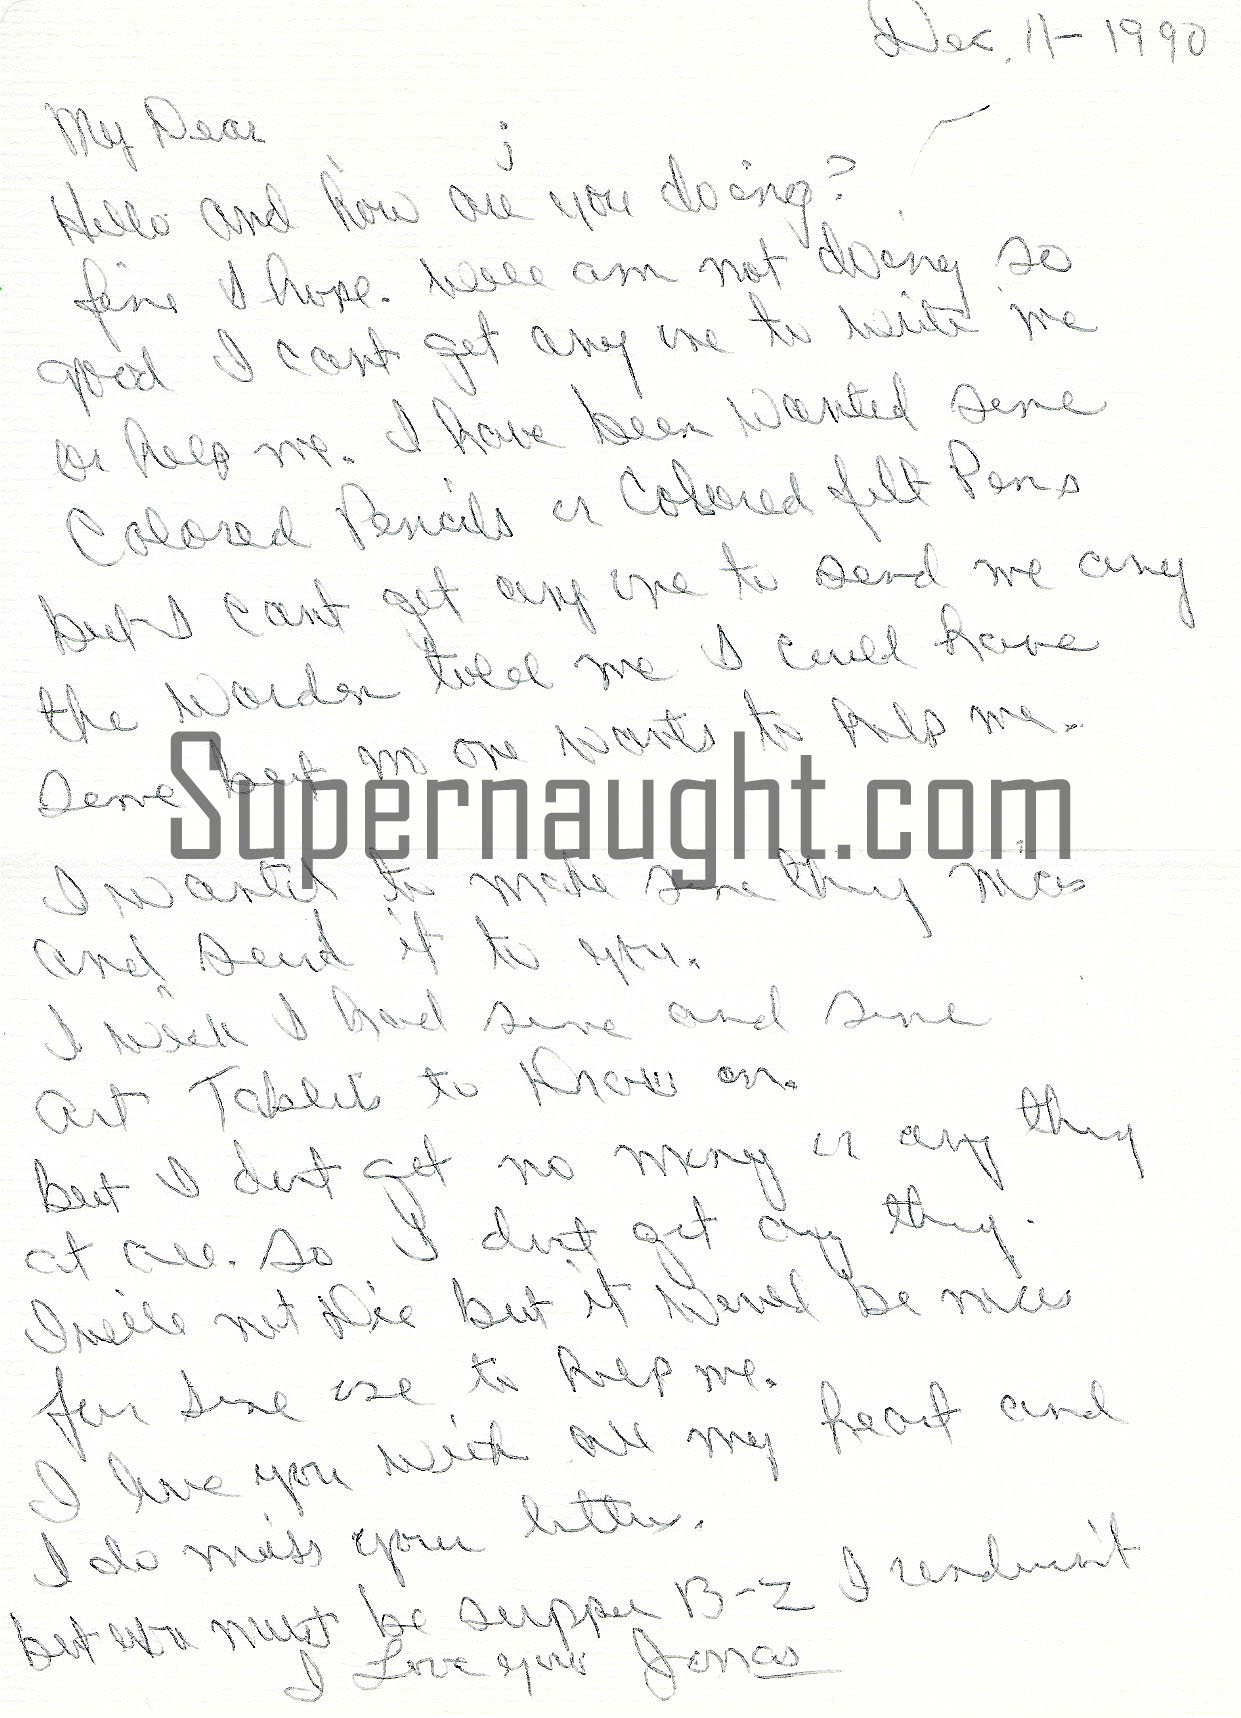 Dec. 11-1990
My Dear ;
Hello and how are you doing?
fine I hope. well am not doing so
good I cant get any one to write me
or help me. I have been wanted some
Colored Pencils or Colored felt Pens
but I cant get any one to send me any
the warden told me I could have
some but no one wants to help me.
Supernaught.com
I wanted to make some thing nice
and send it to you.
I wish I had some and some
art Tablets to Draw on.
but I dont get no money or any thing
at all. So I dont get any thing.
I will not Die but it would be nice
for some one to help me.
I love you with all my heart and
I do miss your letters.
but you must be supper B-Z I
I Love you Jonas